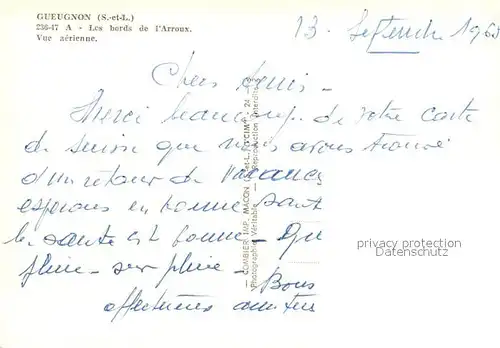 GUEUGNON (S.-et-L.)
236-47 A - Les bords de l'Arroux.
Vue aérienne.
13 Septembre 1963
Chers Amis -
Merci beaucoup de votre carte
de suisse que nous avons trouvé
d'un retour de Vacances
esperons en bonne santé
la santé est bonne -
pluie - sur pluie - Bons
affectueuses amitiés
— COMBIER IMP. MACON (S.-et-L.) "CIM" - 24
Photographie Véritable — Reproduction Interdite
privacy protection
Datenschutz